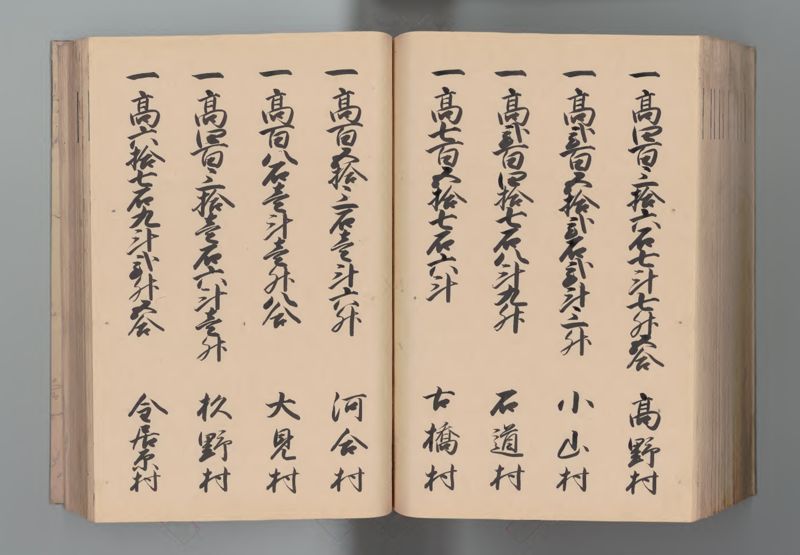 一高四百三拾六石七斗七升五合 高野村
一高弐百五拾弐石弐斗三升 小山村
一高弐百四拾七石八斗九升 石道村
一高七百五拾七石六斗 古橋村
一高百五拾三石壱斗六升 河合村
一高百八石壱斗壱升八合 大見村
一高四百三拾壱石六斗壱升 杉野村
一高六拾七石九斗弐升五合 金居原村